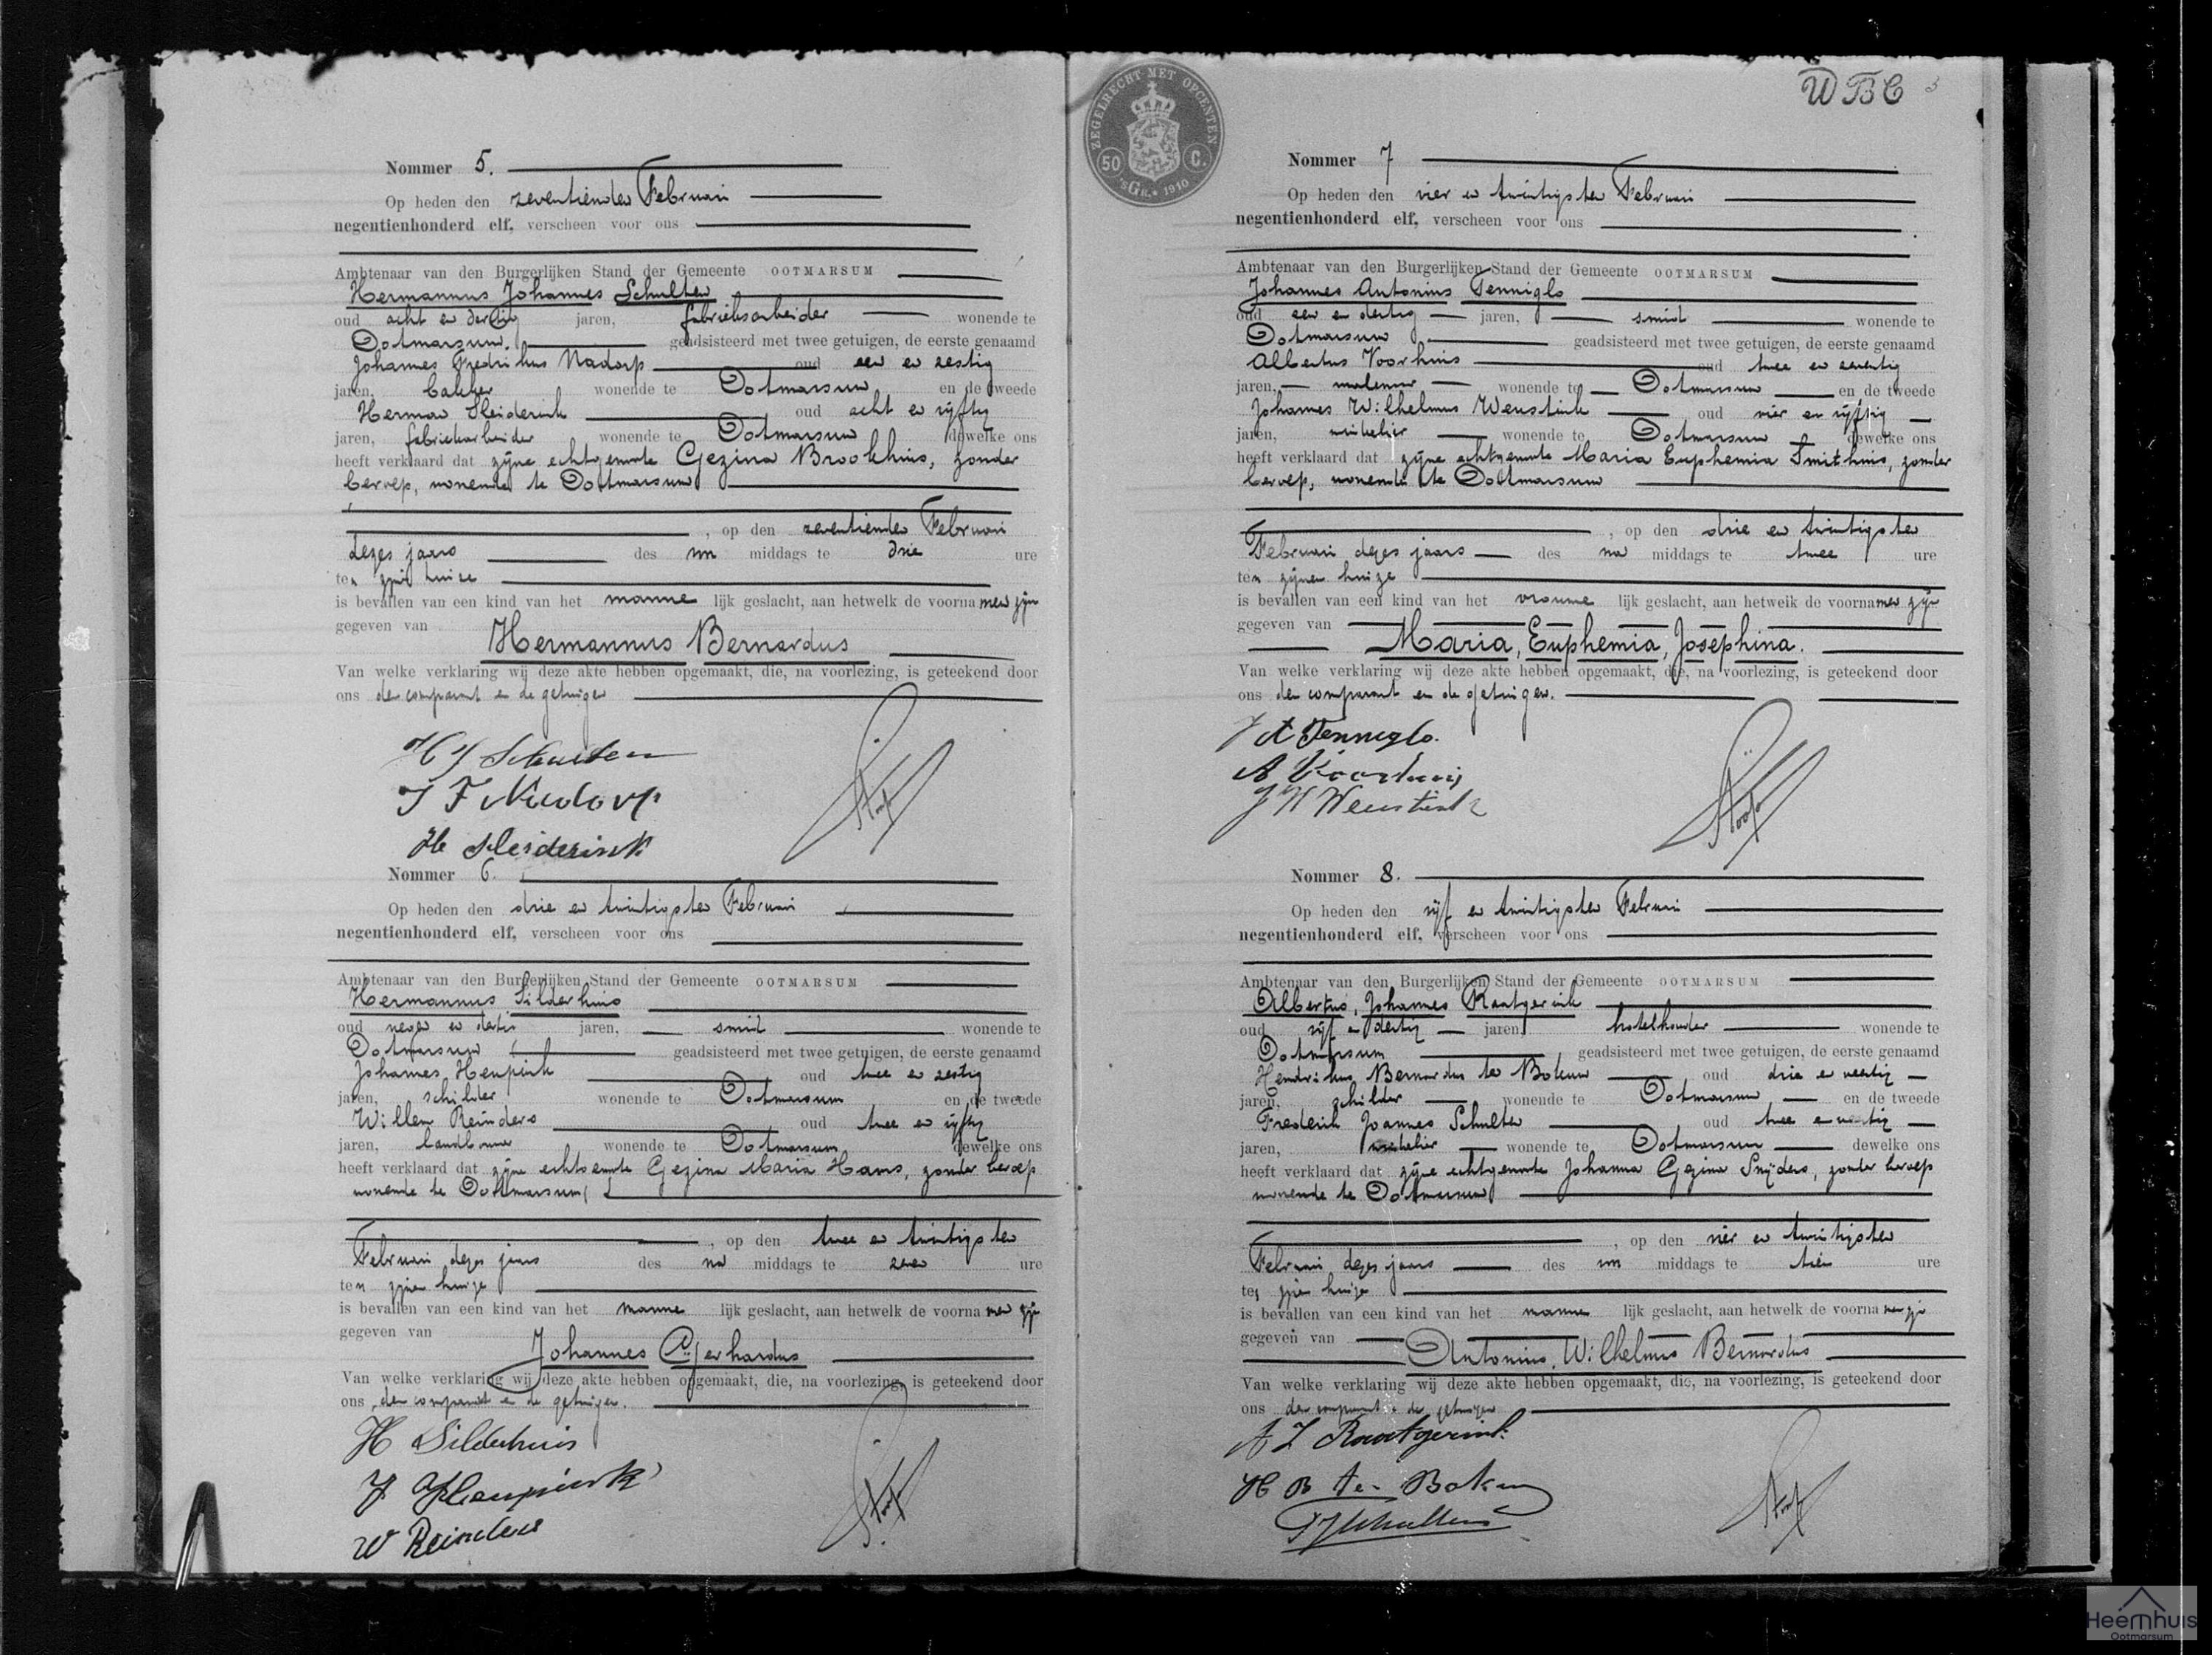 Nommer 5.
Op heden den zeventienden Februari
negentienhonderd elf, verscheen voor ons
Ambtenaar van den Burgerlijken Stand der Gemeente OOTMARSUM
Hermannus Johannes Schulten
oud acht en dertig jaren, fabrieksarbeider wonende te
Ootmarsum, geadsisteerd met twee getuigen, de eerste genaamd
Johannes Fredrikus Nadorp oud een en zestig
jaren, bakker wonende te Ootmarsum en de tweede
Herman Sleiderink oud acht en vijftig
jaren, fabriekarbeider wonende te Ootmarsum dewelke ons
heeft verklaard dat zijne echtgenoote Gezina Brookhuis, zonder
beroep, wonende te Ootmarsum
, op den zeventienden Februari
dezes jaars des vm middags te drie ure
ten zijnen huize
is bevallen van een kind van het manne lijk geslacht, aan hetwelk de voornamen zijn
gegeven van
Hermannus Bernardus
Van welke verklaring wij deze akte hebben opgemaakt, die, na voorlezing, is geteekend door
ons den comparant en de getuigen
H J Schulten
J F Nadorp
H Sleiderink
Nommer 6.
Op heden den drie en twintigsten Februari
negentienhonderd elf, verscheen voor ons
Ambtenaar van den Burgerlijken Stand der Gemeente OOTMARSUM
Hermannus Silderhuis
oud negen en dertig jaren, smid wonende te
Ootmarsum geadsisteerd met twee getuigen, de eerste genaamd
Johannes Heupink oud twee en zestig
jaren, schilder wonende te Ootmarsum en de tweede
Willem Reinders oud twee en vijftig
jaren, landbouwer wonende te Ootmarsum dewelke ons
heeft verklaard dat zijne echtgenoote Gezina Maria Haars, zonder beroep
wonende te Ootmarsum,
, op den twee en twintigsten
Februari dezes jaars des na middags te zeven ure
ten zijnen huize
is bevallen van een kind van het manne lijk geslacht, aan hetwelk de voornamen zijn
gegeven van
Johannes Gerhardus
Van welke verklaring wij deze akte hebben opgemaakt, die, na voorlezing, is geteekend door
ons, den comparant en de getuigen.
H Silderhuis
J Heupink
W Reinders
ZEGELRECHT MET OPCENTEN
50 C.
'SGR. 1910
WBC
Nommer 7
Op heden den vier en twintigsten Februari
negentienhonderd elf, verscheen voor ons
Ambtenaar van den Burgerlijken Stand der Gemeente OOTMARSUM
Johannes Antonius Tenniglo
oud een en dertig jaren, smid wonende te
Ootmarsum geadsisteerd met twee getuigen, de eerste genaamd
Albertus Voorhuis oud twee en zeventig
jaren, molenaar wonende te Ootmarsum en de tweede
Johannes Wilhelmus Weustink oud vier en vijftig
jaren, winkelier wonende te Ootmarsum dewelke ons
heeft verklaard dat zijne echtgenoote Maria Euphemia Smithuis, zonder
beroep, wonende te Ootmarsum
, op den drie en twintigsten
Februari dezes jaars des na middags te twee ure
ten zijnen huize
is bevallen van een kind van het vrouwe lijk geslacht, aan hetwelk de voornamen zijn
gegeven van
Maria, Euphemia, Josephina.
Van welke verklaring wij deze akte hebben opgemaakt, die, na voorlezing, is geteekend door
ons den comparant en de getuigen.
J A Tenniglo.
A Voorhuis
J W Weustink
Nommer 8.
Op heden den vijf en twintigsten Februari
negentienhonderd elf, verscheen voor ons
Ambtenaar van den Burgerlijken Stand der Gemeente OOTMARSUM
Albertus, Johannes Raatgerink
oud vijf en dertig jaren, hotelhouder wonende te
Ootmarsum geadsisteerd met twee getuigen, de eerste genaamd
Hendrikus Bernardus te Bokum oud drie en veertig
jaren, schilder wonende te Ootmarsum en de tweede
Frederik Joannes Schulten oud twee en veertig
jaren, winkelier wonende te Ootmarsum dewelke ons
heeft verklaard dat zijne echtgenoote Johanna Gezina Snijders, zonder beroep
wonende te Ootmarsum
, op den vier en twintigsten
Februari dezes jaars des vm middags te tien ure
ten zijnen huize
is bevallen van een kind van het manne lijk geslacht, aan hetwelk de voornamen zijn
gegeven van
Antonius, Wilhelmus Bernardus
Van welke verklaring wij deze akte hebben opgemaakt, die, na voorlezing, is geteekend door
ons den comparant en de getuigen
A J Raatgerink.
H B te Bokum
F J Schulten
Heemhuis
Ootmarsum